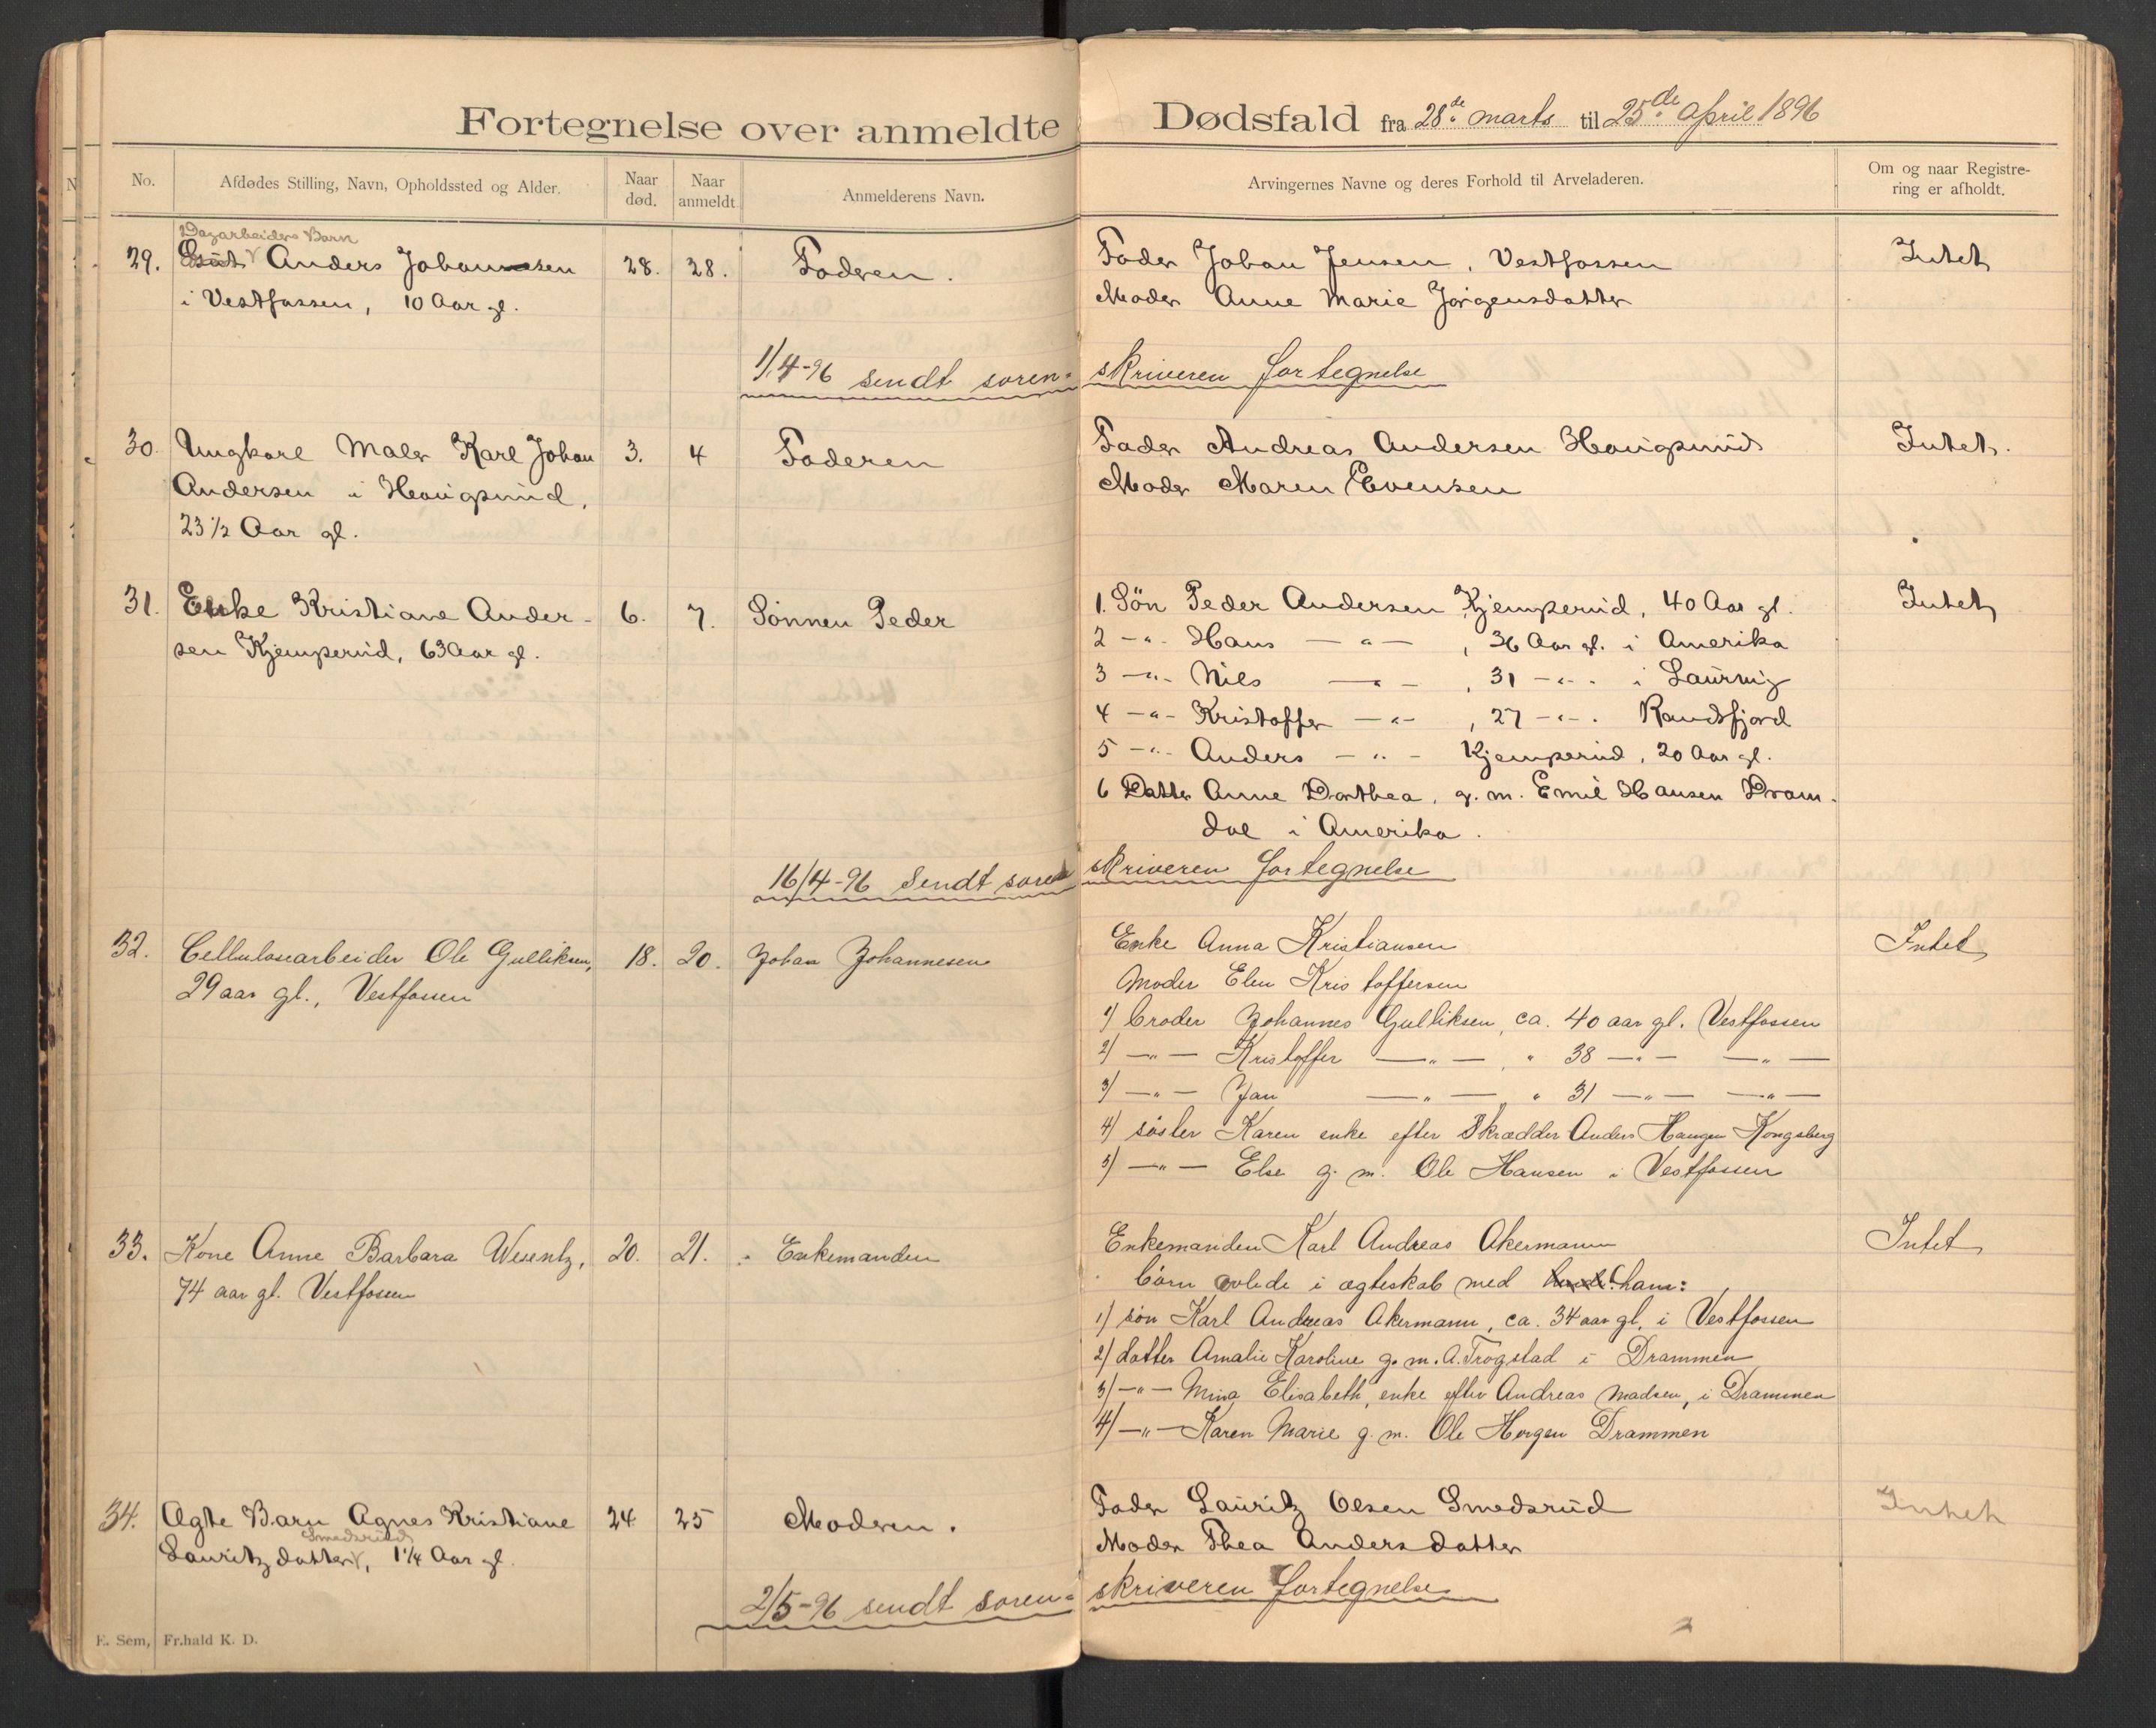 Fortegnelse over anmeldte Dødsfald fra 28de marts til 25de April 1896
No. Afdødes Stilling, Navn, Opholdssted og Alder. Naar død. Naar anmeldt. Anmelderens Navn. Arvingernes Navne og deres Forhold til Arveladeren. Om og naar Registrering er afholdt.
Dagarbeiders Barn
29. Anders Johansen 28. 28. Faderen. Fader Johan Jensen, Vestfossen Intet
i Vestfossen, 10 Aar gl. Moder Anne Marie Jørgensdatter
1/4-96 sendt soren- skriveren fortegnelse
30. Ungkarl Maler Karl Johan 3. 4 Faderen Fader Andreas Andersen Hougsund Intet.
Andersen i Hougsund, Moder Maren Evensen
23 1/2 Aar gl.
31. Enke Kristiane Ander- 6. 7. Sønnen Peder 1. Søn Peder Andersen Kjemperud, 40 Aar gl. Intet
sen Kjemperud, 63 Aar gl. 2 -"- Hans -"-, 36 Aar gl. i Amerika
3 -"- Nils -"-, 31 -"- i Laurvig
4 -"- Kristoffer -"-, 27 -"-. Randsfjord
5 -"- Anders -"- Kjemperud, 20 Aar gl.
6 Datter Anne Dorthea, g. m. Emil Hansen Dram-
dal i Amerika.
16/4-96 Sendt soren skriveren fortegnelse
32. Cellulosearbeider Ole Gulliksen, 18. 20. Johan Johannesen Enke Anna Kristiansen Intet
29 aar gl., Vestfossen Moder Elen Kristoffersen
1) broder Johannes Gulliksen, ca. 40 aar gl. Vestfossen
2) -"- Kristoffer -"-, " 38 -"- -"-
3) -"- Jan -"-, " 31 -"- -"-
4) søster Karen enke efter Skrædder Anders Haugen Kongsberg
5) -"- Else g. m. Ole Hansen i Vestfossen
33. Kone Anne Barbara Wesentz, 20. 21. Enkemanden Enkemanden Karl Andreas Akermann Intet
74 aar gl. Vestfossen børn avlede i ægteskab med ham:
1) søn Karl Andreas Akermann, ca. 34 aar gl, i Vestfossen
2) datter Amalie Karoline g. m. A. Trøgstad i Drammen
3) -"- Mina Elisabeth, enke efter Andreas Madsen, i Drammen
4) -"- Karen Marie g. m. Ole Horgen Drammen
34. Ægte Barn Agnes Kristiane 24 25 Moderen. Fader Lauritz Olsen Smedsrud Intet
Smedsrud
Lauritzdatter, 1 1/4 Aar gl. Moder Thea Andersdatter
2/5-96 sendt soren- skriveren fortegnelse
E. Sem, Fr.hald K. D.